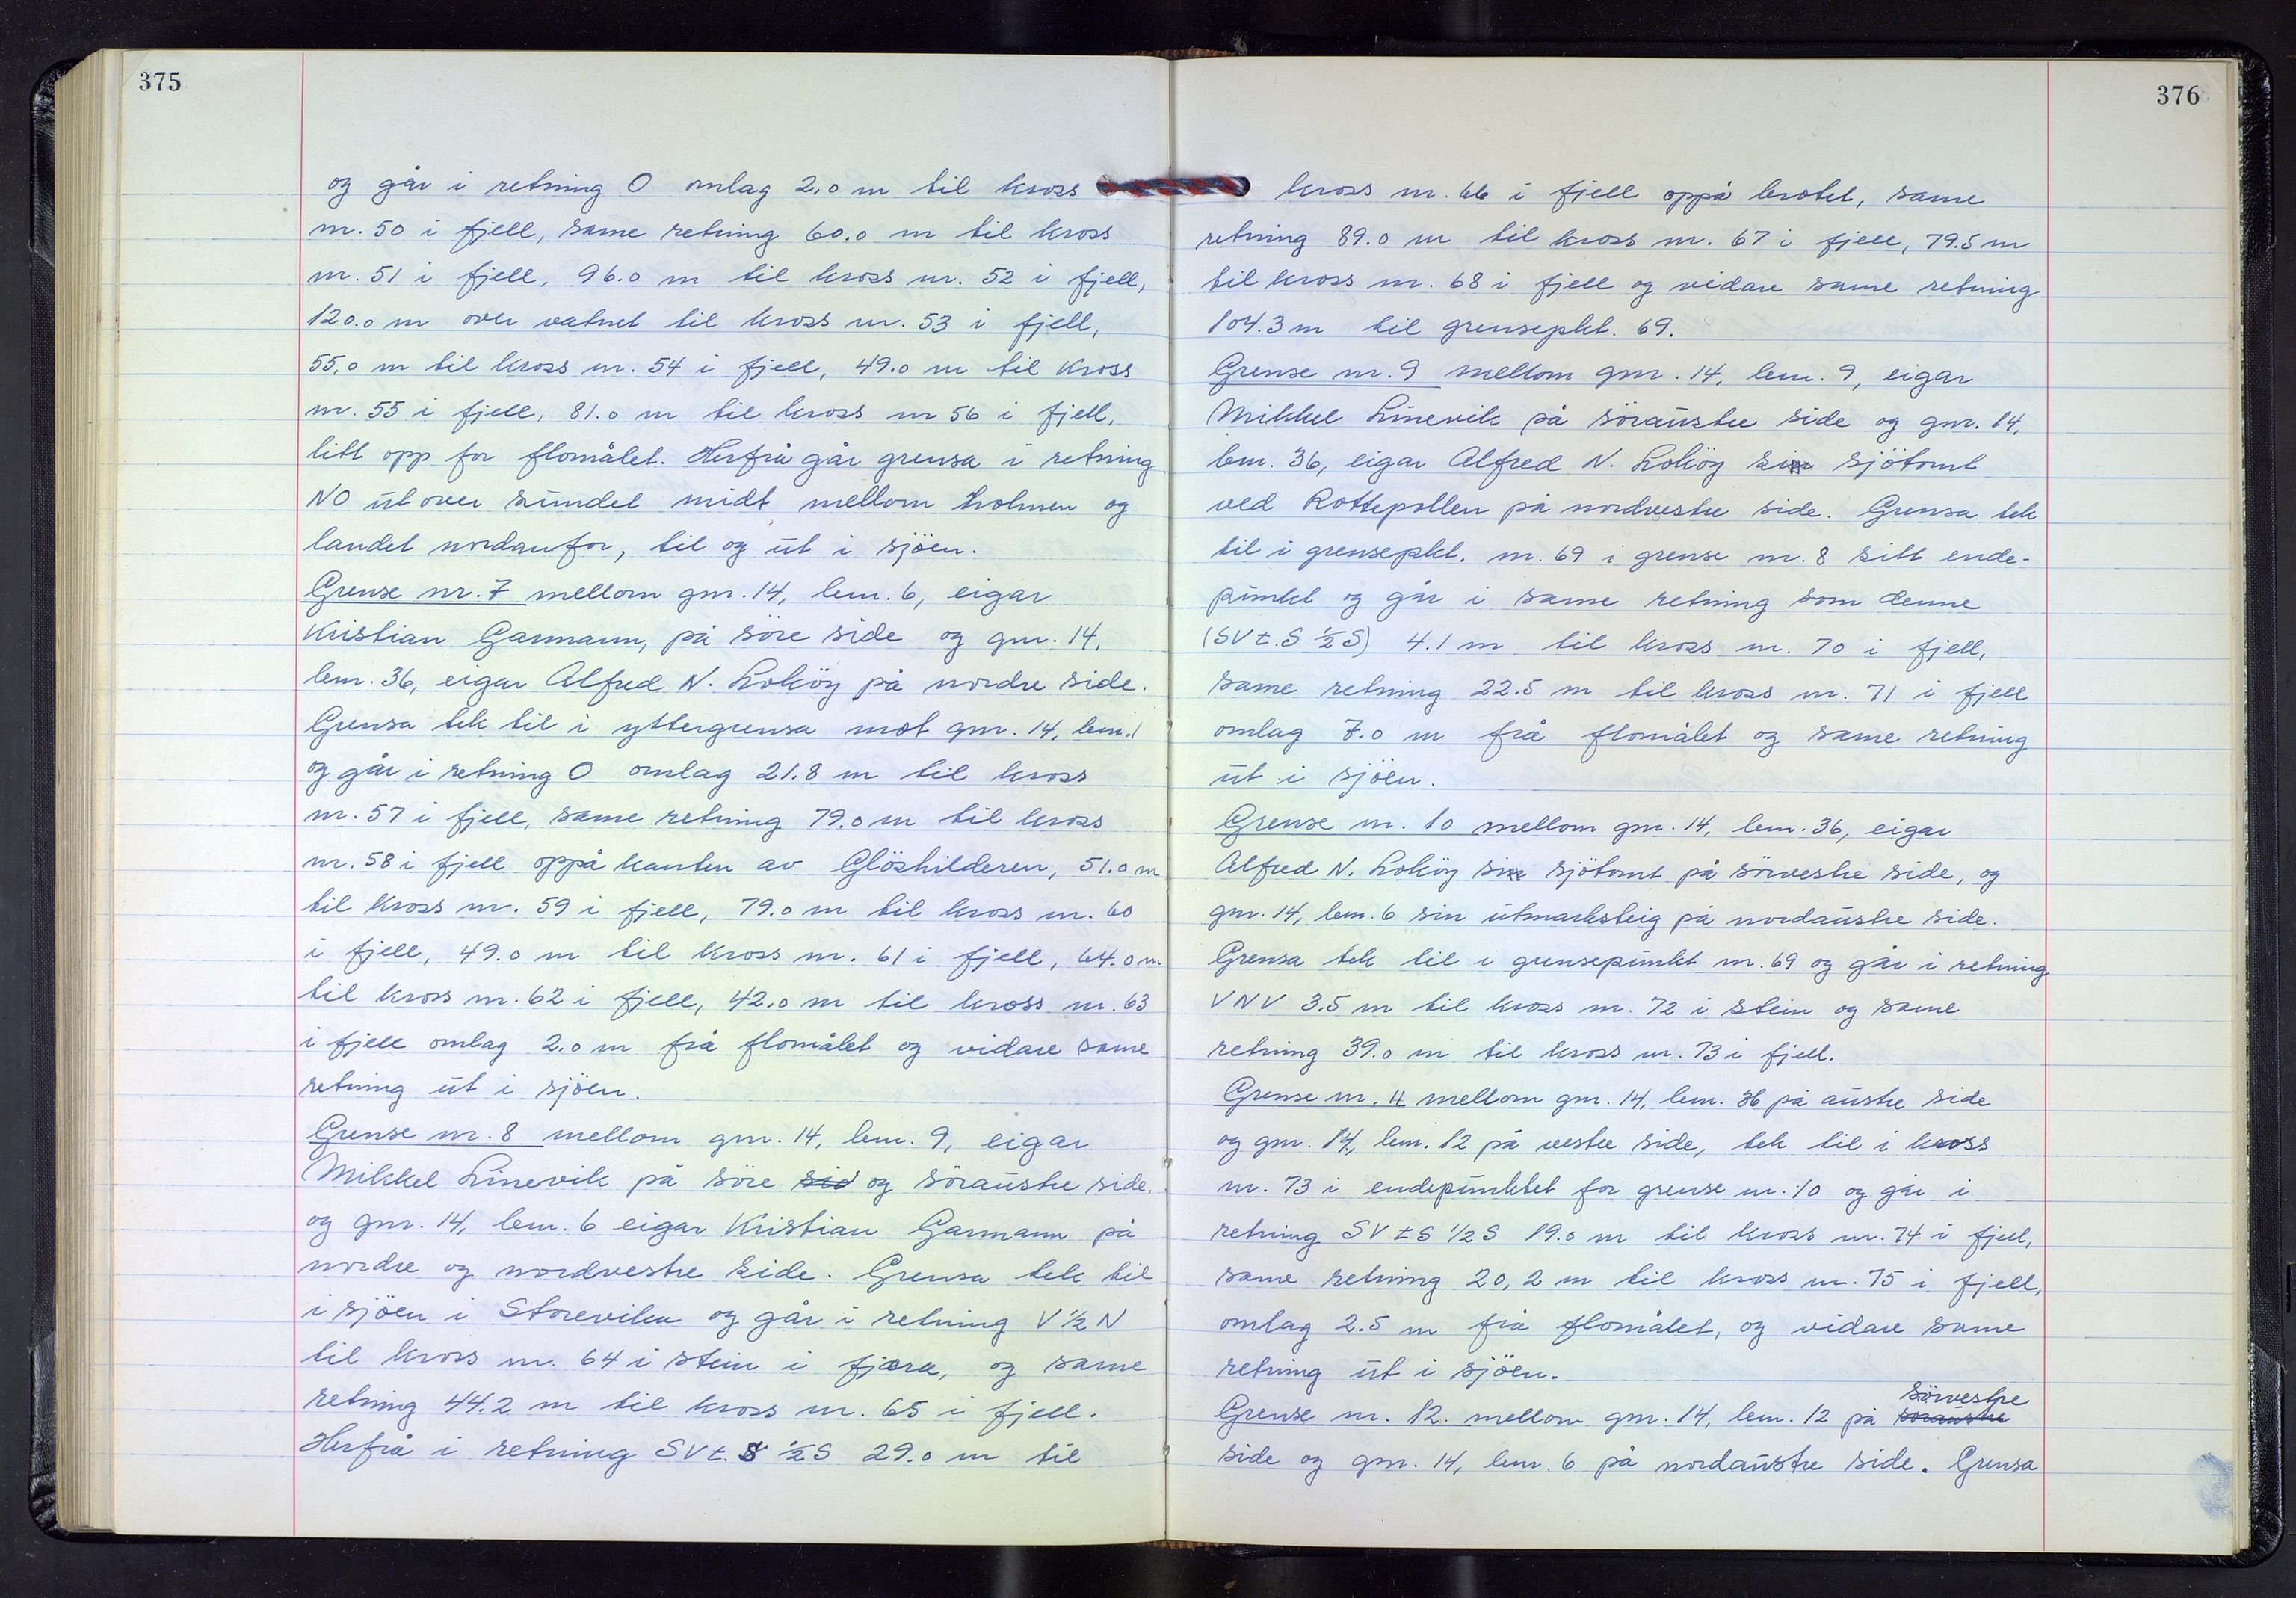 375
og går i retning O omlag 2,0 m til kross
nr. 50 i fjell, same retning 60.0 m til kross
nr. 51 i fjell, 96.0 m til kross nr. 52 i fjell,
120.0 m over vatnet til kross nr. 53 i fjell,
55,0 m til kross nr. 54 i fjell, 49.0 m til kross
nr. 55 i fjell, 81.0 m til kross nr 56 i fjell,
litt opp for flomålet. Herfrå går grensa i retning
NO ut over sundet midt mellom holmen og
landet nordanfor, til og ut i sjöen.
Grense nr. 7 mellom gnr. 14, bnr. 6, eigar
Kristian Garmann, på söre side og gnr. 14,
bnr. 36, eigar Alfred N. Loköy på nordre side.
Grensa tek til i yttergrensa mot gnr. 14, bnr. 1
og går i retning O omlag 21.8 m til kross
nr. 57 i fjell, same retning 79.0 m til kross
nr. 58 i fjell oppå kanten av Glöshilderen, 51.0 m
til kross nr. 59 i fjell, 79.0 m til kross nr. 60
i fjell, 49.0 m til kross nr. 61 i fjell, 64.0 m
til kross nr. 62 i fjell, 42.0 m til kross nr. 63
i fjell omlag 2.0 m frå flomålet og vidare same
retning ut i sjöen.
Grense nr. 8 mellom gnr. 14, bnr. 9, eigar
Mikkel Linevik på söre sid og söraustre side,
og gnr. 14, bnr. 6 eigar Kristian Garmann på
nordre og nordvestre side. Grensa tek til
i sjöen i Storevika og går i retning V 1/2 N
til kross nr. 64 i stein i fjæra, og same
retning 44.2 m til kross nr. 65 i fjell.
Herfrå i retning SV t. S 1/2 S 29.0 m til
376
kross nr. 66 i fjell oppå brotet, same
retning 89.0 m til kross nr. 67 i fjell, 79.5 m
til kross nr. 68 i fjell og vidare same retning
104.3 m til grensepkt. 69.
Grense nr. 9 mellom gnr. 14, bnr. 9, eigar
Mikkel Linevik på söraustre side og gnr. 14,
bnr. 36, eigar Alfred N. Loköy si sjötomt
ved Rottepollen på nordvestre side. Grensa tek
til i grensepkt. nr. 69 i grense nr. 8 sitt ende-
punkt og går i same retning som denne
(SV t. S 1/2 S) 4.1 m til kross nr. 70 i fjell,
same retning 22.5 m til kross nr. 71 i fjell
omlag 7.0 m frå flomålet og same retning
ut i sjöen.
Grense nr. 10 mellom gnr. 14, bnr. 36, eigar
Alfred N. Loköy si sjötomt på sörvestre side, og
gnr. 14, bnr. 6 sin utmarksteig på nordaustre side.
Grensa tek til i grensepunkt nr. 69 og går i retning
VNV 3.5 m til kross nr. 72 i stein og same
retning 39.0 m til kross nr. 73 i fjell.
Grense nr. 11 mellom gnr. 14, bnr. 36 på austre side
og gnr. 14, bnr. 12 på vestre side, tek til i kross
nr. 73 i endepunktet for grense nr. 10 og går i
retning SV t S 1/2 S 19.0 m til kross nr. 74 i fjell,
same retning 20,2 m til kross nr. 75 i fjell,
omlag 2.5 m frå flomålet, og vidare same
retning ut i sjöen.
Grense nr. 12. mellom gnr. 14, bnr. 12 på söraustre sörvestre
side og gnr. 14, bnr. 6 på nordaustre side. Grensa